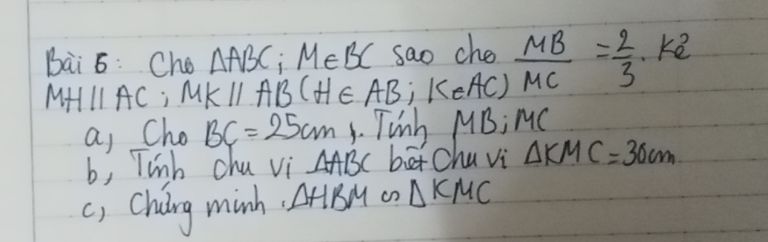 Bài 5: Cho ΔABC; M∈BC sao cho MB/MC = 2/3. Kẻ
MH // AC; MK // AB (H ∈ AB; K∈AC)
a, Cho BC = 25cm. Tính MB; MC
b, Tính chu vi ΔABC biết Chu vi ΔKMC = 30cm
c, Chứng minh ΔHBM ∽ ΔKMC